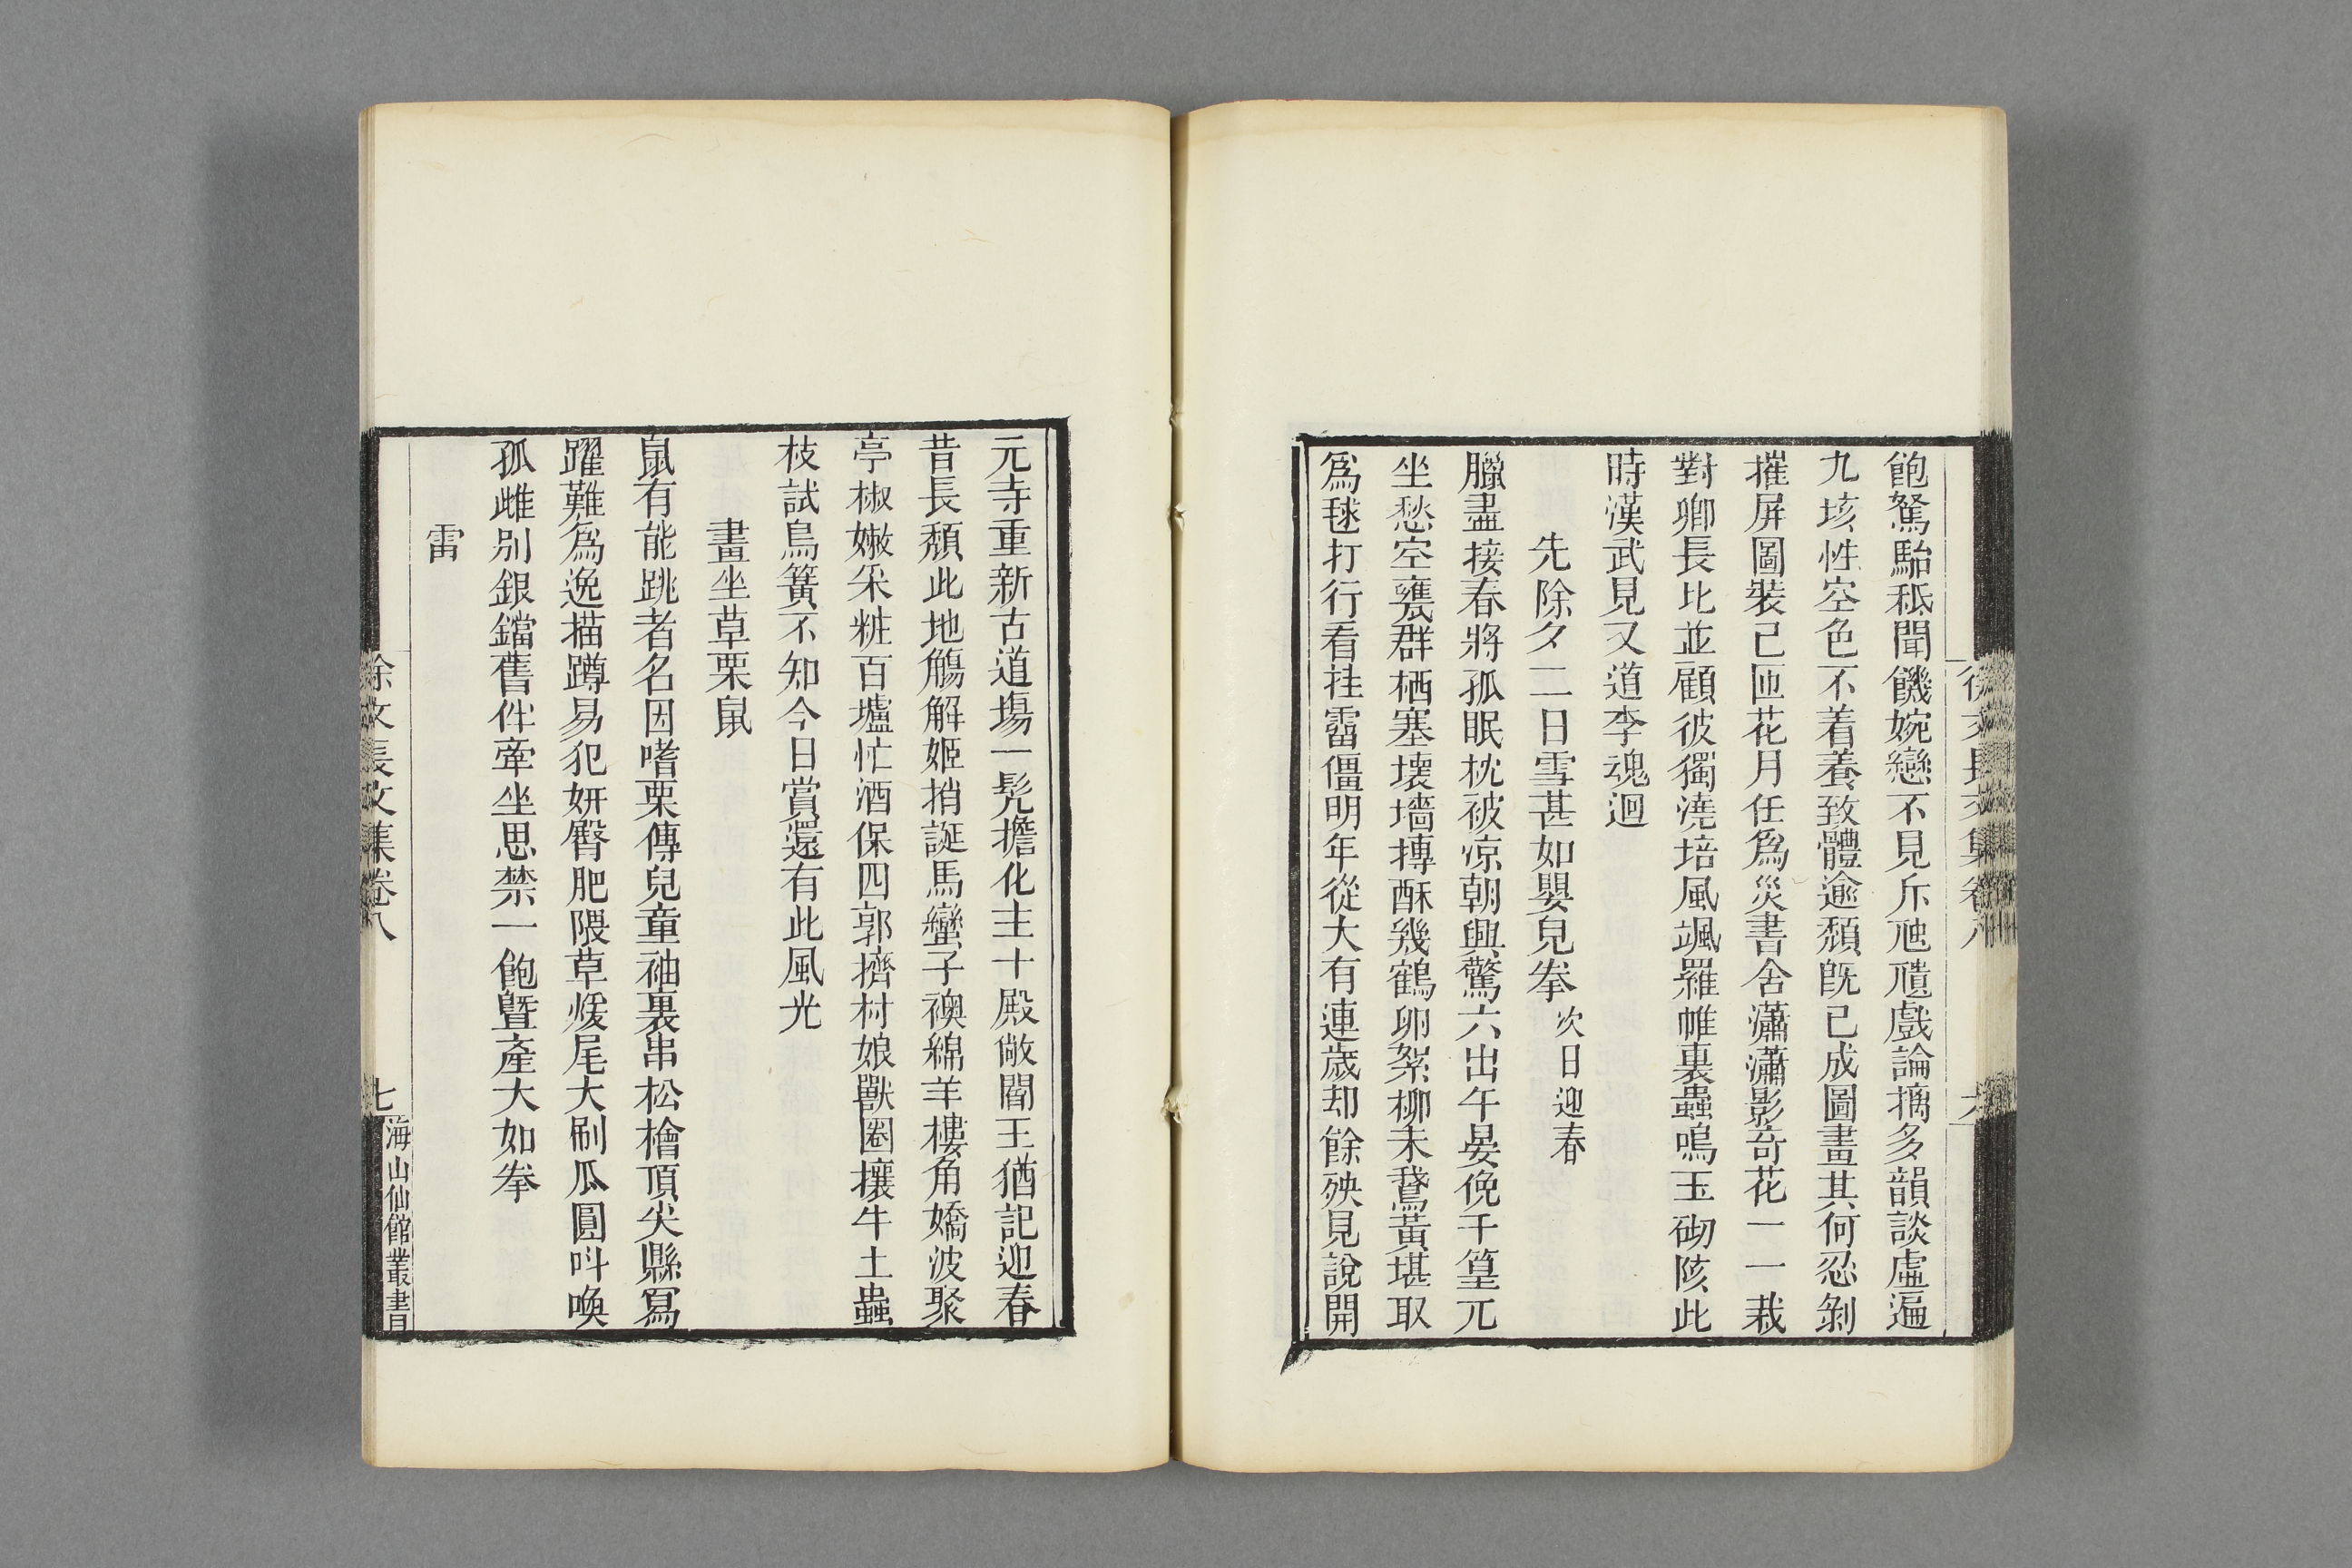 徐文長文集卷八
六
飽駑駘秪聞饑婉戀不見斥虺隤戲論摛多韻談虛遍
九垓性空色不着養致體逾頽旣已成圖畫其何忍剝
摧屏圖裝已匝花月任爲災書舍瀟瀟影奇花一一栽
對卿長比並顧彼獨澆培風颯羅帷裏蟲鳴玉砌陔此
時漢武見又道李魂迴
先除夕二日雪甚如嬰兒拳次日迎春
臘盡接春將孤眠枕被凉朝興驚六出午晏俛千篁兀
坐愁空甕群栖塞壞墻摶酥幾鶴卵絮柳未鵞黃堪取
爲毬打行看挂霤僵明年從大有連歲却餘殃見說開
元寺重新古道塲一髠擔化主十殿敞閻王猶記迎春
昔長頽此地觴解姬捎誕馬蠻子襖綿羊樓角嬌波聚
亭椒嫩采粧百壚忙酒保四郭擠村娘獸圈攘牛土蟲
枝試鳥簧不知今日賞還有此風光
畫坐草栗鼠
鼠有能跳者名因嗜栗傳兒童袖裏串松檜頂尖縣寫
躍難爲逸描蹲易犯妍臀肥隈草煖尾大刷瓜圓呌喚
孤雌别銀鐺舊伴牽坐思禁一飽曁產大如拳
雷
徐文長文集卷八
七
海山仙館叢書